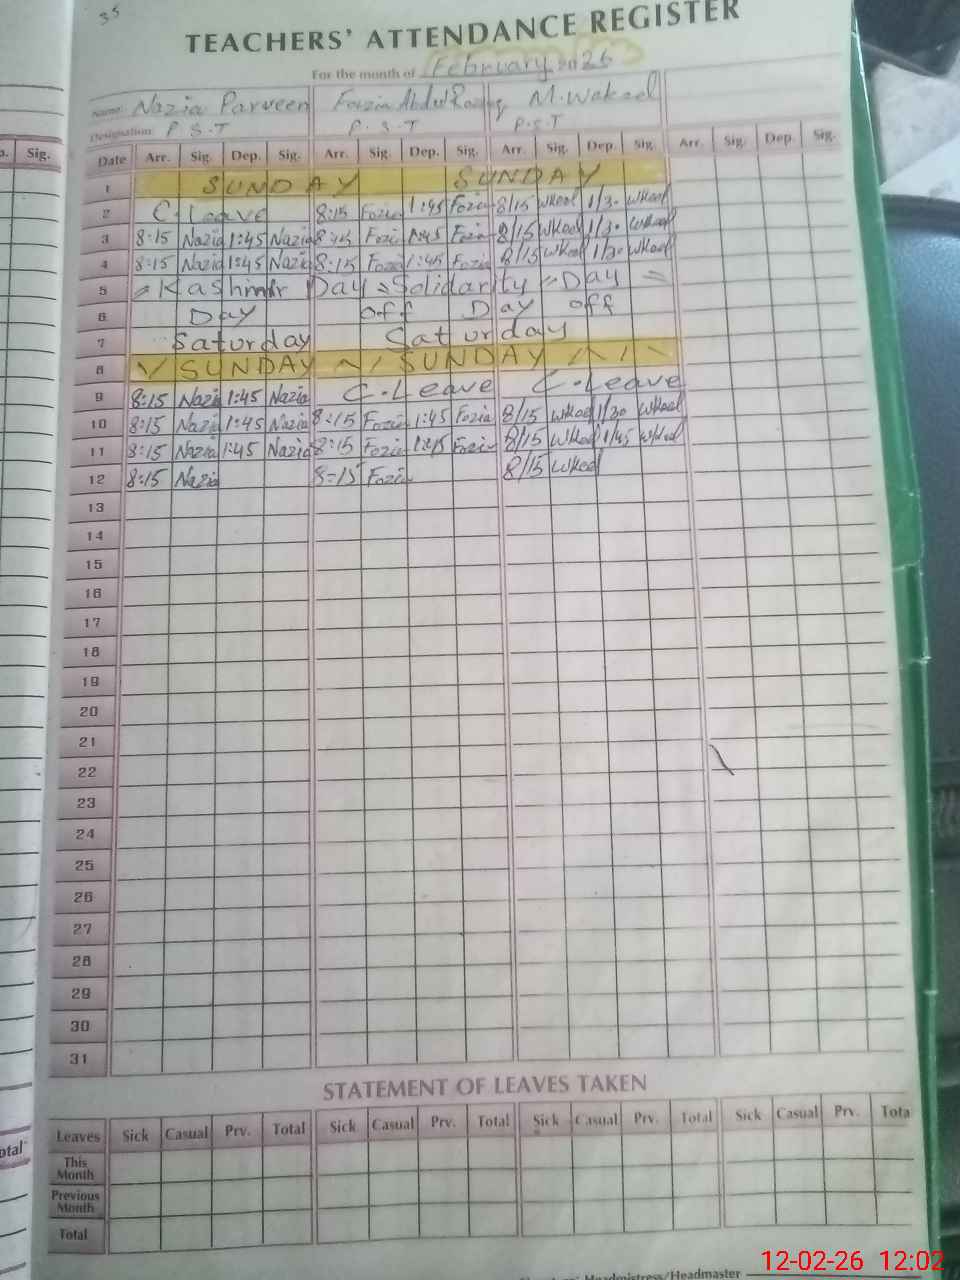 35
TEACHERS' ATTENDANCE REGISTER
For the month of February 2026
Name: Nazia Parveen Fouzia Abdul M. Wakeel
Designation: P.S.T P.S.T P.S.T
Sig.
Date Arr. Sig. Dep. Sig. Arr. Sig. Dep. Sig. Arr. Sig. Dep. Sig. Arr. Sig. Dep. Sig.
1 SUNDAY SUNDAY
2 C.Leave 8:15 Fozia 1:45 Fozia 8/15 Wkeel 1/30 Wkeel
3 8:15 Nazia 1:45 Nazia 8:15 Fozia 1:45 Fozia 8/15 Wkeel 1/30 Wkeel
4 8:15 Nazia 1:45 Nazia 8:15 Fozia 1:45 Fozia 8/15 Wkeel 1/30 Wkeel
5 Kashmir Day Solidarity Day
6 Day off Day off
7 Saturday Saturday
8 SUNDAY SUNDAY
9 8:15 Nazia 1:45 Nazia C.Leave C.Leave
10 8:15 Nazia 1:45 Nazia 8:15 Fozia 1:45 Fozia 8/15 Wkeel 1/30 Wkeel
11 8:15 Nazia 1:45 Nazia 8:15 Fozia 1:45 Fozia 8/15 Wkeel 1/45 Wkeel
12 8:15 Nazia 8=15 Fozia 8/15 Wkeel
13
14
15
16
17
18
19
20
21
22
23
24
25
26
27
28
29
30
31
STATEMENT OF LEAVES TAKEN
Leaves Sick Casual Prv. Total Sick Casual Prv. Total Sick Casual Prv. Total Sick Casual Prv. Tota
This Month
Previous Month
Total
Headmistress/Headmaster
12-02-26 12:02